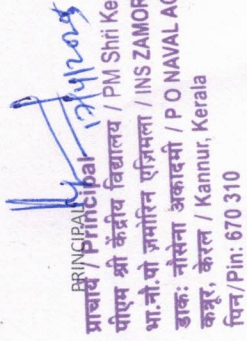 PRINCIPAL
प्राचार्य / Principal
पीएम श्री केंद्रीय विद्यालय / PM Shri Ke
भा.नौ.पो ज़मोरिन एझिमला / INS ZAMOR
डाकः नौसेना अकादमी / P O NAVAL AC
कन्नूर, केरल / Kannur, Kerala
पिन/Pin: 670 310